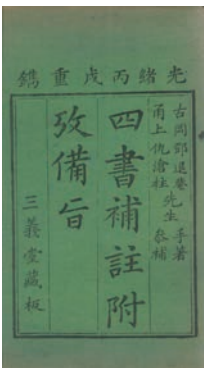 光緒丙戌重鐫
古岡鄧退菴先生手著
甬上仇滄柱先生參補
四書補註附
攷備旨
三義堂藏板